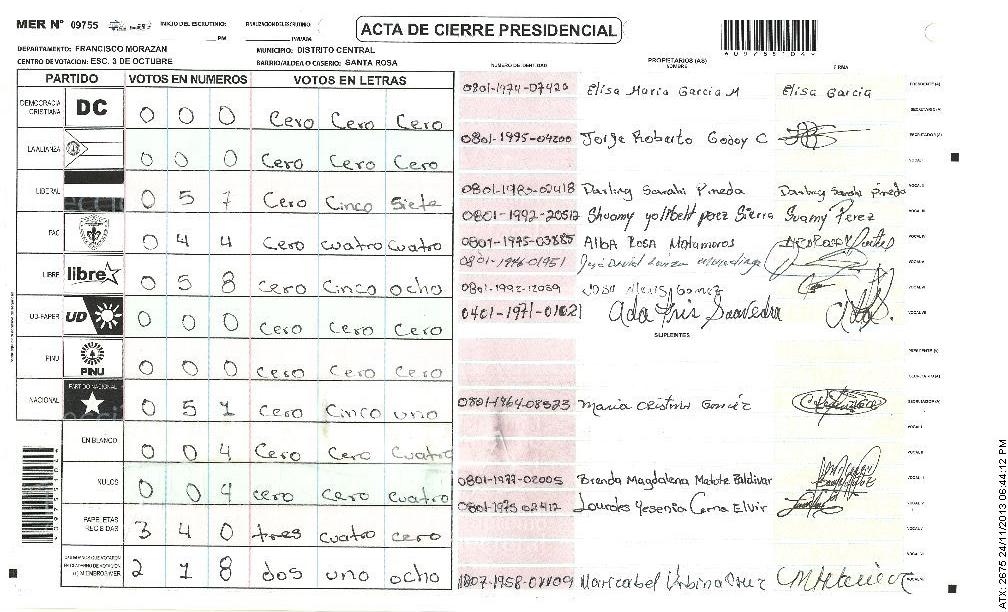 MER Nº 09755 INICIO DEL ESCRUTINIO: ___ PM FINALIZACION DEL ESCRUTINIO: PM/AM
ACTA DE CIERRE PRESIDENCIAL
DEPARTAMENTO: FRANCISCO MORAZAN MUNICIPIO: DISTRITO CENTRAL
CENTRO DE VOTACION: ESC. 3 DE OCTUBRE BARRIO/ALDEA O CASERIO: SANTA ROSA
PARTIDO VOTOS EN NUMEROS VOTOS EN LETRAS
DEMOCRACIA CRISTIANA DC 0 0 0 Cero Cero Cero
LA ALIANZA 0 0 0 Cero Cero Cero
LIBERAL 0 5 7 Cero Cinco Siete
PAC 0 4 4 Cero cuatro cuatro
LIBRE libre 0 5 8 Cero Cinco ocho
UD-FAPER UD 0 0 0 Cero Cero Cero
PINU PINU 0 0 0 Cero Cero Cero
NACIONAL PARTIDO NACIONAL 0 5 1 Cero Cinco uno
EN BLANCO 0 0 4 Cero Cero Cuatro
NULOS 0 0 4 cero cero cuatro
PAPELETAS RECIBIDAS 3 4 0 tres cuatro cero
2 1 8 dos uno ocho
NUMERO DE IDENTIDAD PROPIETARIOS (AS) NOMBRE FIRMA
0801-1974-07420 Elisa Maria Garcia M Elisa Garcia
0801-1995-04200 Jorge Roberto Godoy C
Darling Sarahi Pineda Darling Sarahi Pineda
0801-1992-20512 Perez
0801-1975-03885 Alba Rosa Matamoros
0801-1946-01951 Jose David
0801-1992-12039 Gomez
0401-1971-01021 Ada Iris Saavedra
SUPLENTES
0801-1964-08523 Maria Cristina
0801-1977-02005 Brenda Magdalena
0801-1975 02412 Lourdes Yesenia Cerna Elvir
Maricabel Urbina Cruz
ATX: 2675 24/11/2013 06:44:12 PM